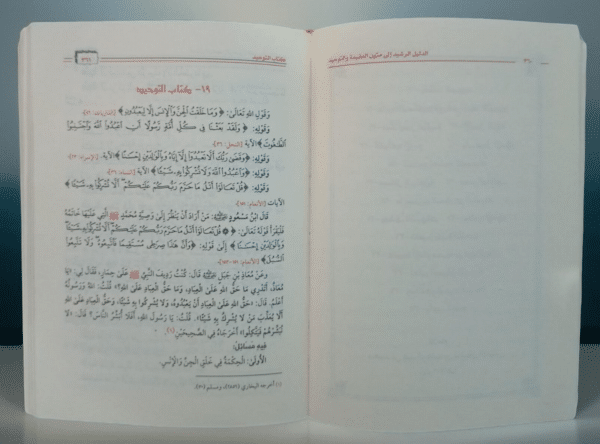 الدليل الرشيد إلى متون العقيدة والتوحيد
كتاب التوحيد
١٩- كتاب التوحيد
وَقَوْلِ اللهِ تَعَالَى: ﴿وَمَا خَلَقْتُ الْجِنَّ وَالْإِنسَ إِلَّا لِيَعْبُدُونِ﴾ [الذاريات: ٥٦].
وَقَوْلِهِ: ﴿وَلَقَدْ بَعَثْنَا فِي كُلِّ أُمَّةٍ رَّسُولًا أَنِ اعْبُدُوا اللَّهَ وَاجْتَنِبُوا
الطَّاغُوتَ﴾ الآية [النحل: ٣٦].
وَقَوْلِهِ: ﴿وَقَضَىٰ رَبُّكَ أَلَّا تَعْبُدُوا إِلَّا إِيَّاهُ وَبِالْوَالِدَيْنِ إِحْسَانًا﴾ الآية. [الإسراء: ٢٣].
وَقَوْلِهِ: ﴿وَاعْبُدُوا اللَّهَ وَلَا تُشْرِكُوا بِهِ شَيْئًا﴾ الآية [النساء: ٣٦].
وَقَوْلِهِ: ﴿قُلْ تَعَالَوْا أَتْلُ مَا حَرَّمَ رَبُّكُمْ عَلَيْكُمْ أَلَّا تُشْرِكُوا بِهِ شَيْئًا﴾
الآيات [الأنعام: ١٥١].
قَالَ ابْنُ مَسْعُودٍ رضي الله عنه: مَنْ أَرَادَ أَنْ يَنْظُرَ إِلَى وَصِيَّةِ مُحَمَّدٍ ﷺ الَّتِي عَلَيْهَا خَاتَمُهُ
فَلْيَقْرَأْ قَوْلَهُ تَعَالَى: ﴿۞ قُلْ تَعَالَوْا أَتْلُ مَا حَرَّمَ رَبُّكُمْ عَلَيْكُمْ أَلَّا تُشْرِكُوا بِهِ شَيْئًا
وَبِالْوَالِدَيْنِ إِحْسَانًا﴾ إِلَى قَوْلِهِ: ﴿وَأَنَّ هَٰذَا صِرَاطِي مُسْتَقِيمًا فَاتَّبِعُوهُ وَلَا تَتَّبِعُوا
السُّبُلَ﴾ [الأنعام: ١٥١-١٥٣].
وَعَنْ مُعَاذِ بْنِ جَبَلٍ رضي الله عنه قَالَ: كُنْتُ رَدِيفَ النَّبِيِّ ﷺ عَلَى حِمَارٍ، فَقَالَ لِي: «يَا
مُعَاذُ، أَتَدْرِي مَا حَقُّ اللهِ عَلَى الْعِبَادِ، وَمَا حَقُّ الْعِبَادِ عَلَى اللهِ؟» قُلْتُ: اللهُ وَرَسُولُهُ
أَعْلَمُ. قَالَ: «حَقُّ اللهِ عَلَى الْعِبَادِ أَنْ يَعْبُدُوهُ، وَلَا يُشْرِكُوا بِهِ شَيْئًا، وَحَقُّ الْعِبَادِ عَلَى اللهِ
أَلَّا يُعَذِّبَ مَنْ لَا يُشْرِكُ بِهِ شَيْئًا». قُلْتُ: يَا رَسُولَ اللهِ، أَفَلَا أُبَشِّرُ النَّاسَ؟ قَالَ: «لَا
تُبَشِّرْهُمْ فَيَتَّكِلُوا» أَخْرَجَاهُ فِي الصَّحِيحَيْنِ (١).
فِيهِ مَسَائِلُ:
الْأُولَى: الْحِكْمَةُ فِي خَلْقِ الْجِنِّ وَالْإِنْسِ.